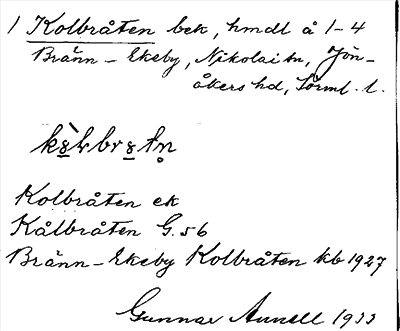 1 Kolbråten bek, hmdl å 1-4
Bränn-Ekeby, Nikolai sn, Jön-
åkers hd, Sörml. l.
Kolbråten ek
Kålbråten G.56
Bränn-Ekeby Kolbråten kb 1927
Gunnar 1933